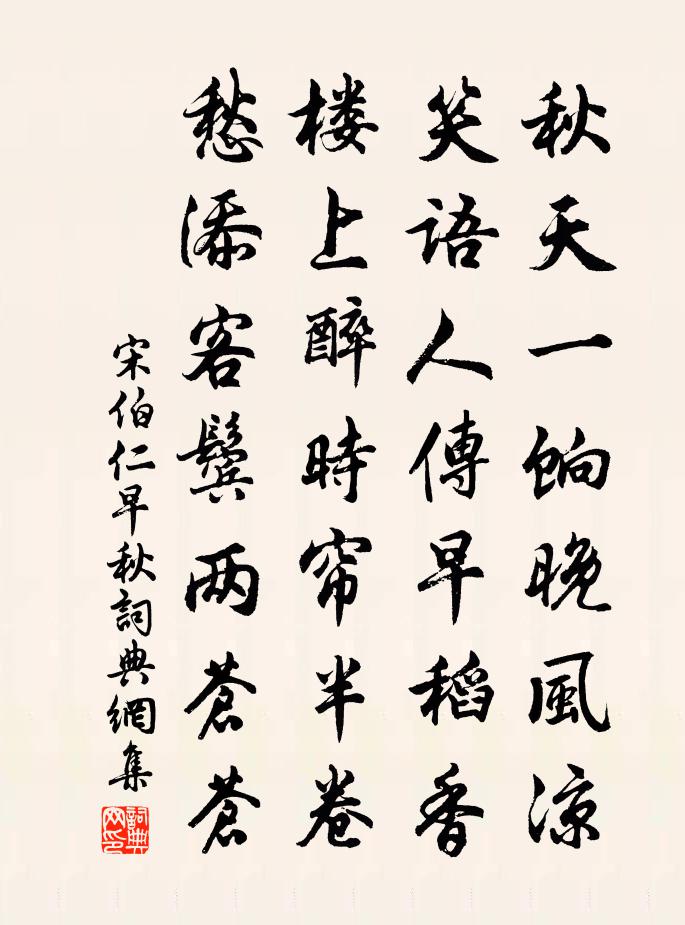 秋天一餉晚風涼
笑語人傳早稻香
楼上醉時帘半卷
愁添客鬓两蒼蒼
宋伯仁早秋詞典網集
詞典網印